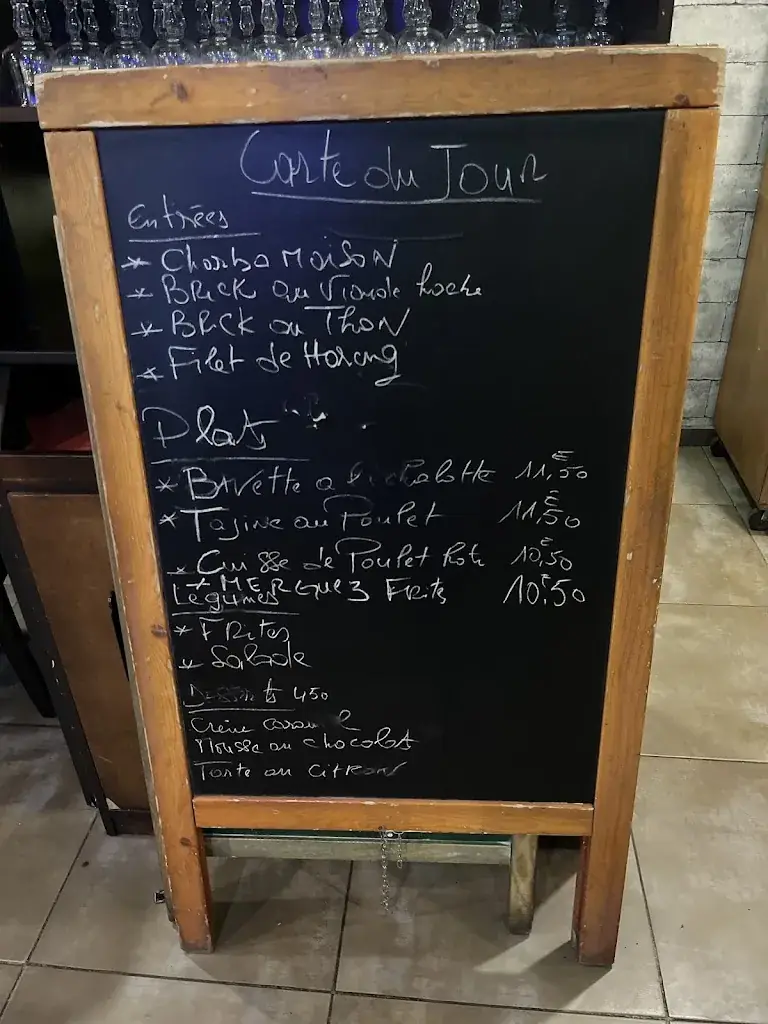 Carte du Jour
Entrées
* Chorba MAISON
* BRICK au Viande hachée
* BRICK au THON
* Filet de Hareng
Plats
* BAVette a l'échalotte 11,50 €
* Tajine au Poulet 11,50 €
* Cuisse de Poulet Roti 10,50 €
+ MERGUEZ Frites 10,50 €
Légumes
* FRites
* Salade
Desserts 450
Crème caramel
Mousse au chocolat
Tarte au citron